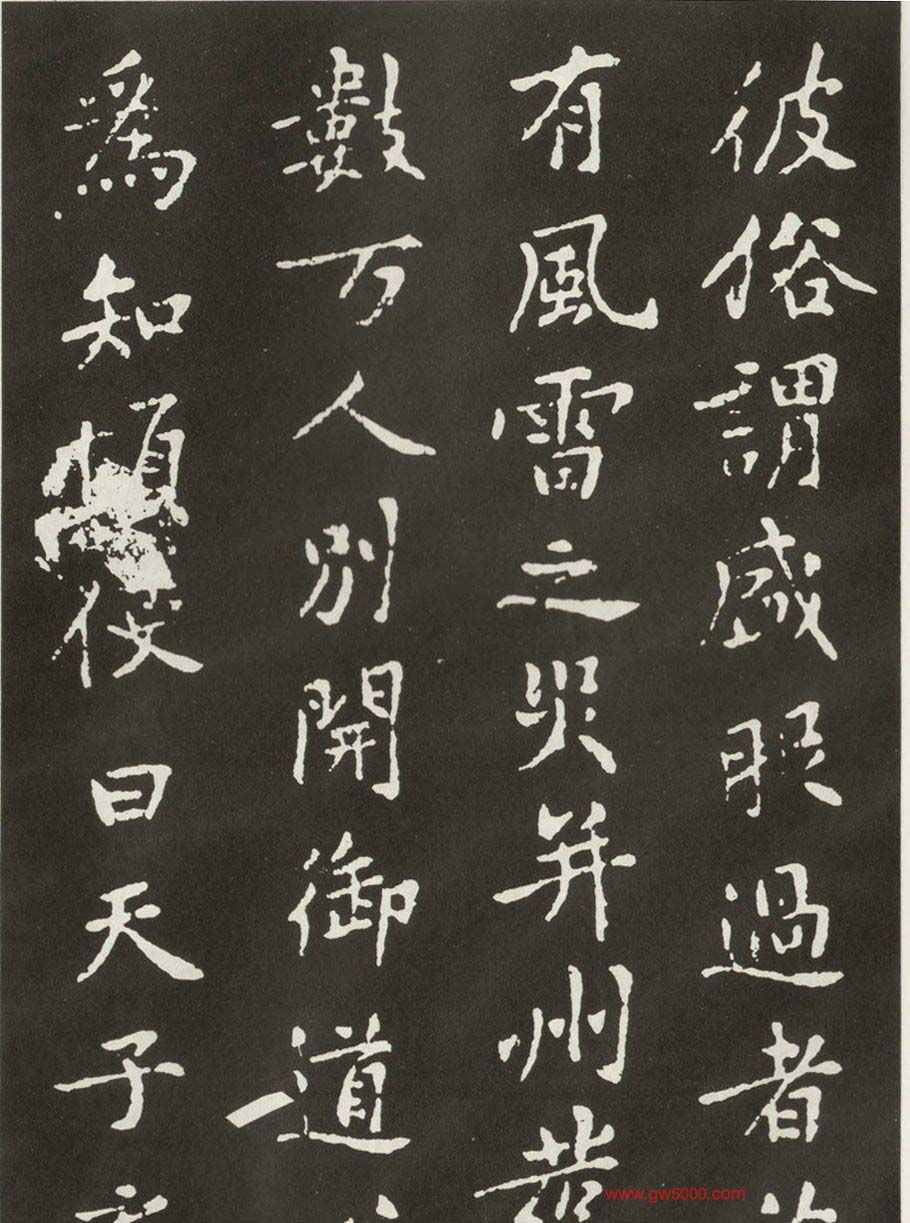 彼俗謂盛服過者
有風雷之災并州
數万人別開御道
爲知頓使曰天子
www.gw5000.com